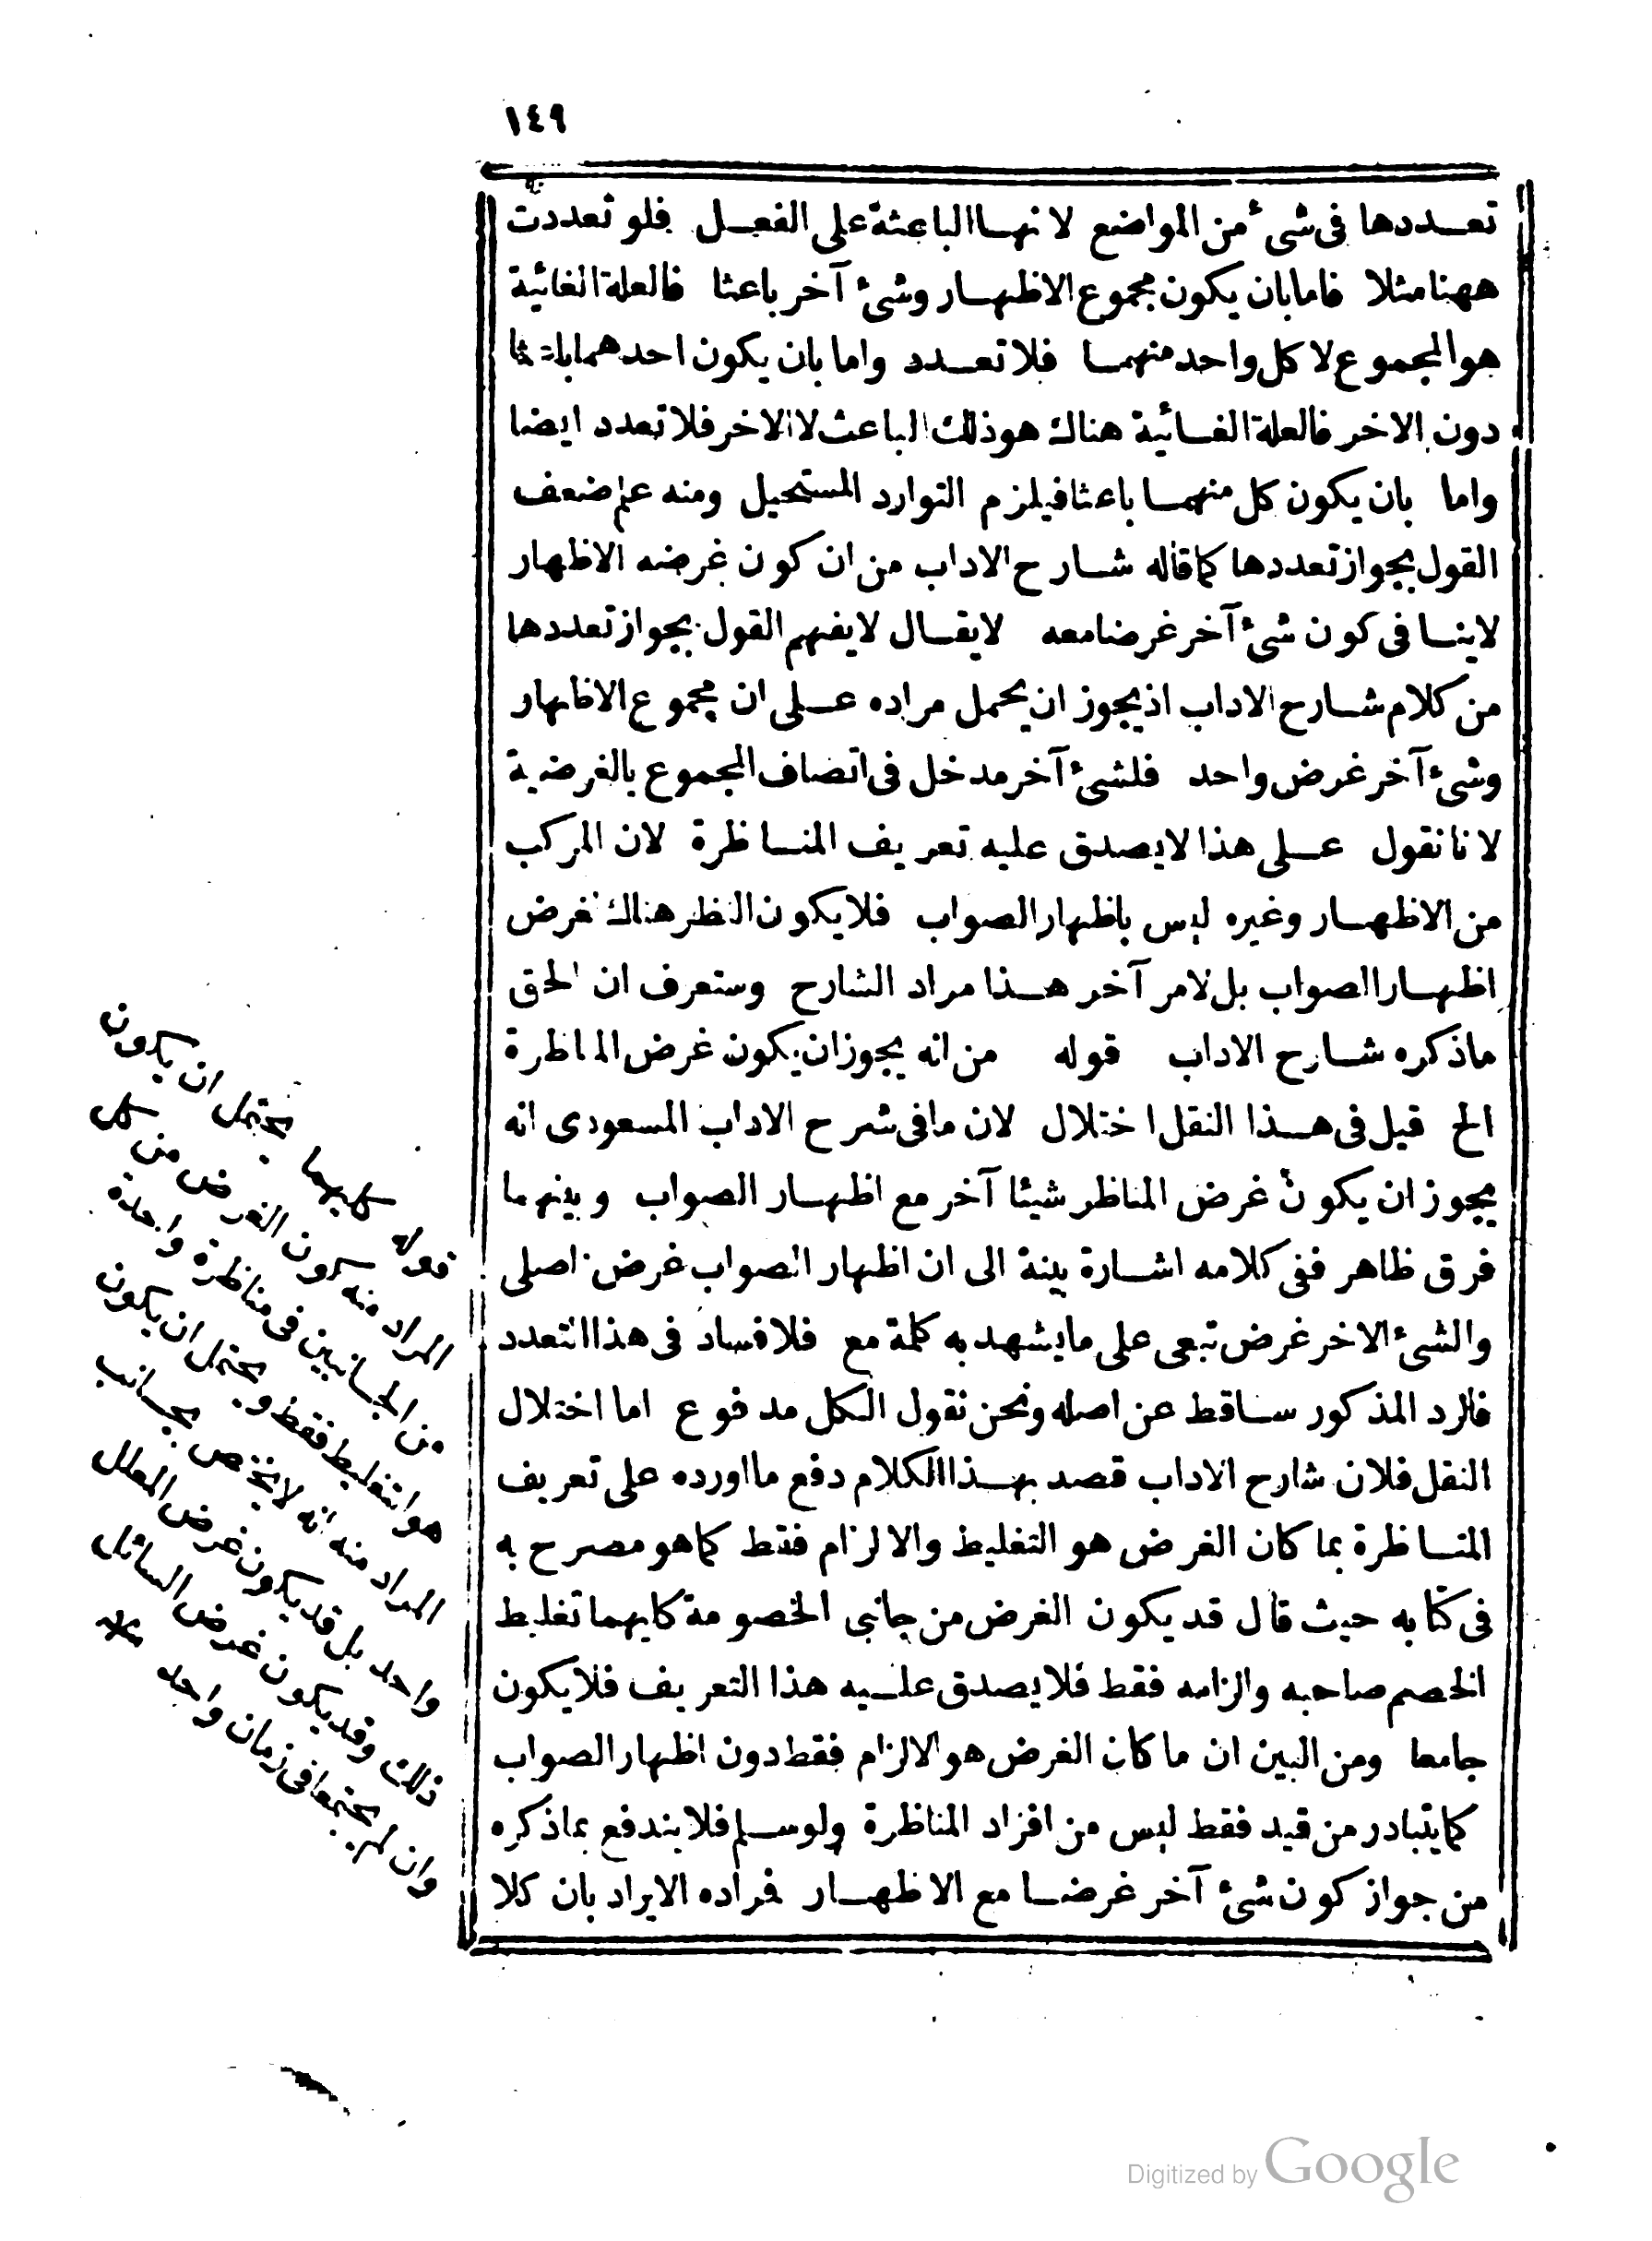 ١٤٩
تعددها فى شئ من المواضع لانها الباعثة على الفعل فلو تعددت
ههنا مثلا فاما بان يكون مجموع الاظهار وشئ آخر باعثا فالعلة الغائية
هو المجموع لا كل واحد منهما فلا تعدد واما بان يكون احدهما باعثا
دون الاخر فالعلة الغائية هناك هو ذلك الباعث لا الاخر فلا تعدد ايضا
واما بان يكون كل منهما باعثا فيلزم التوارد المستحيل ومنه علم ضعف
القول بجواز تعددها كما قاله شارح الاداب من ان كون غرضه الاظهار
لا ينافى كون شئ آخر غرضا معه لا يقال لا يفهم القول بجواز تعددها
من كلام شارح الاداب اذ يجوز ان يحمل مراده على ان مجموع الاظهار
وشئ آخر غرض واحد فلشئ آخر مدخل فى اتصاف المجموع بالغرضية
لانا نقول على هذا لا يصدق عليه تعريف المناظرة لان المركب
من الاظهار وغيره ليس باظهار الصواب فلا يكون النظر هناك لغرض
اظهار الصواب بل لامر آخر هذا مراد الشارح وستعرف ان الحق
ما ذكره شارح الاداب قوله من انه يجوز ان يكون غرض المناظرة
الخ قيل فى هذا النقل اختلال لان ما فى شرح الاداب المسعودى انه
يجوز ان يكون غرض المناظر شيئا آخر مع اظهار الصواب وبينهما
فرق ظاهر ففى كلامه اشارة بينة الى ان اظهار الصواب غرض اصلى
والشئ الاخر غرض تبعى على ما يشهد به كلمة مع فلا فساد فى هذا التعدد
فالرد المذكور ساقط عن اصله ونحن نقول الكل مدفوع اما اختلال
النقل فلان شارح الاداب قصد بهذا الكلام دفع ما اورده على تعريف
المناظرة بما كان الغرض هو التغليط والالزام فقط كما هو مصرح به
فى كتابه حيث قال قد يكون الغرض من جانبى الخصومة كليهما تغليط
الخصم صاحبه والزامه فقط فلا يصدق عليه هذا التعريف فلا يكون
جامعا ومن البين ان ما كان الغرض هو الالزام فقط دون اظهار الصواب
كما يتبادر من قيد فقط ليس من افراد المناظرة ولو سلم فلا يندفع بما ذكره
من جواز كون شئ آخر غرضا مع الاظهار فمراده الايراد بان كلا
قوله كليهما يحتمل ان يكون
المراد منه كون الغرض من كل
من الجانبين فى مناظرة واحدة
هو التغليط فقط ويحتمل ان يكون
المراد منه انه لا يختص بجانب
واحد بل قد يكون غرض المعلل
ذلك وقد يكون غرض السائل
وان لم يجتمعا فى زمان واحد
Digitized by Google